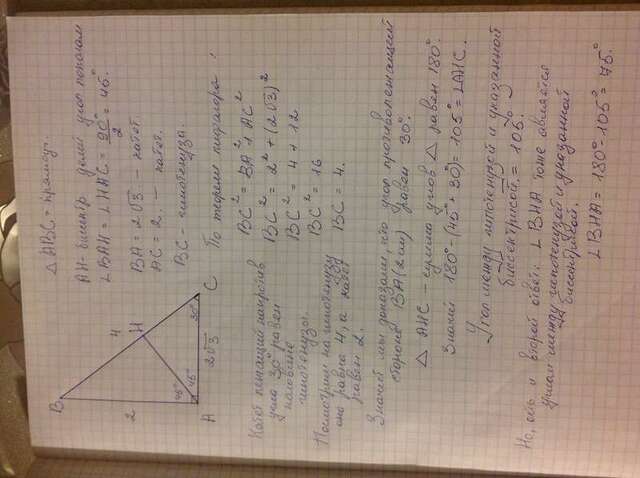 B
2
4
H
45°
45°
30°
A
2√3
C
△ ABC - прямоуг.
AH - биссектр делит угол пополам
∠BAH = ∠HAC = 90°/2 = 45°.
BA = 2√3 - катет.
AC = 2. - катет.
BC - гипотенуза.
По теореме пифагора :
BC² = BA² + AC²
BC² = 2² + (2√3)²
BC² = 4 + 12
BC² = 16
BC = 4.
Катет лежащий напротив
угла 30° равен
половине
гипотенузы.
Посмотрим на гипотенузу
она равна 4, а катет
равен 2.
Значит мы доказали, что угол противолежащей
стороне BA (2 см) равен 30°.
△ AHC - сумма углов △ равен 180°.
Значит 180° - (45° + 30°) = 105° = ∠AHC.
Угол между гипотенузой и указанной
биссектрисой. = 105°.
Но, есть и второй ответ: ∠BHA тоже является
углом между гипотенузой и указанной
биссектрисой.
∠BHA = 180° - 105° = 75°.